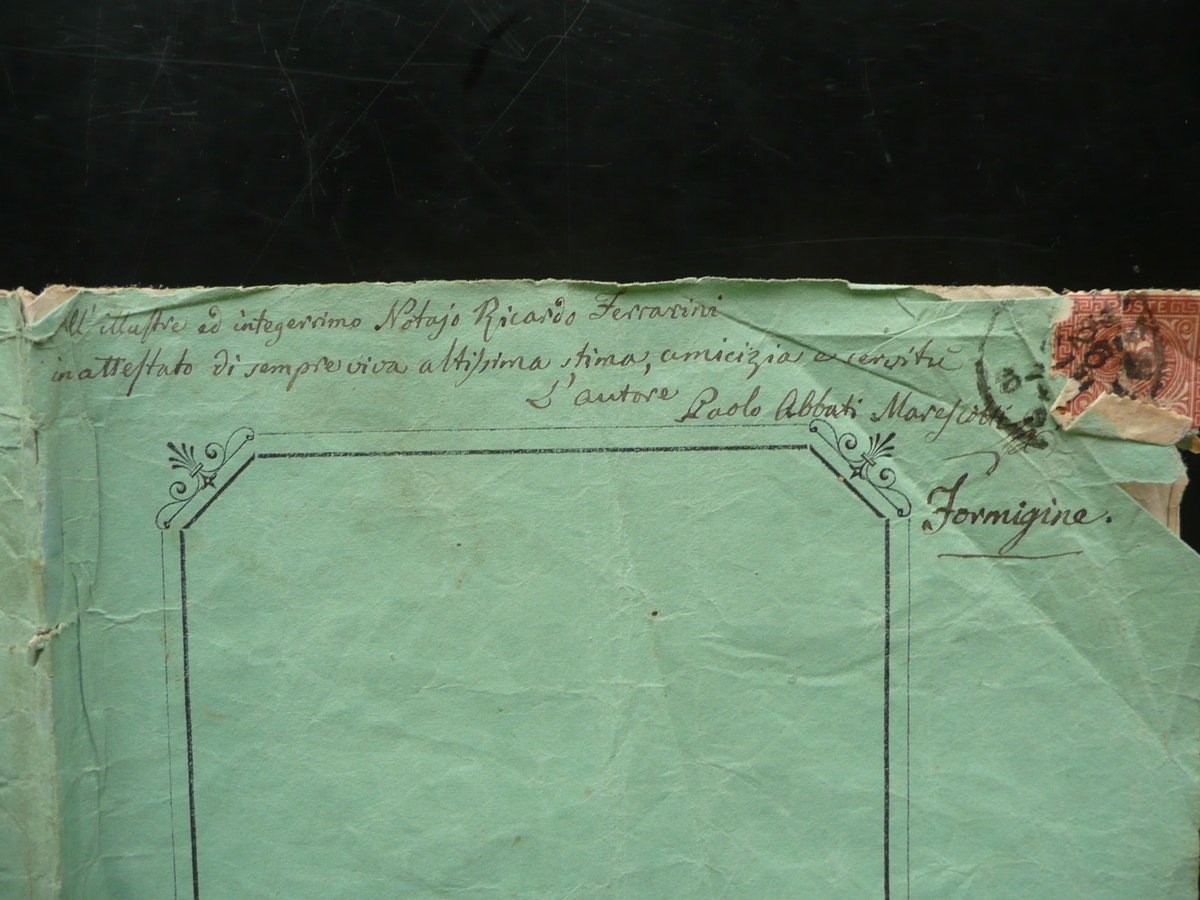 All'illustre ed integerrimo Notajo Ricardo Ferrarini
in attestato di sempre viva altissima stima, amicizia e servitù
L'autore Paolo Abbati Marescotti
Formigine.
POSTE